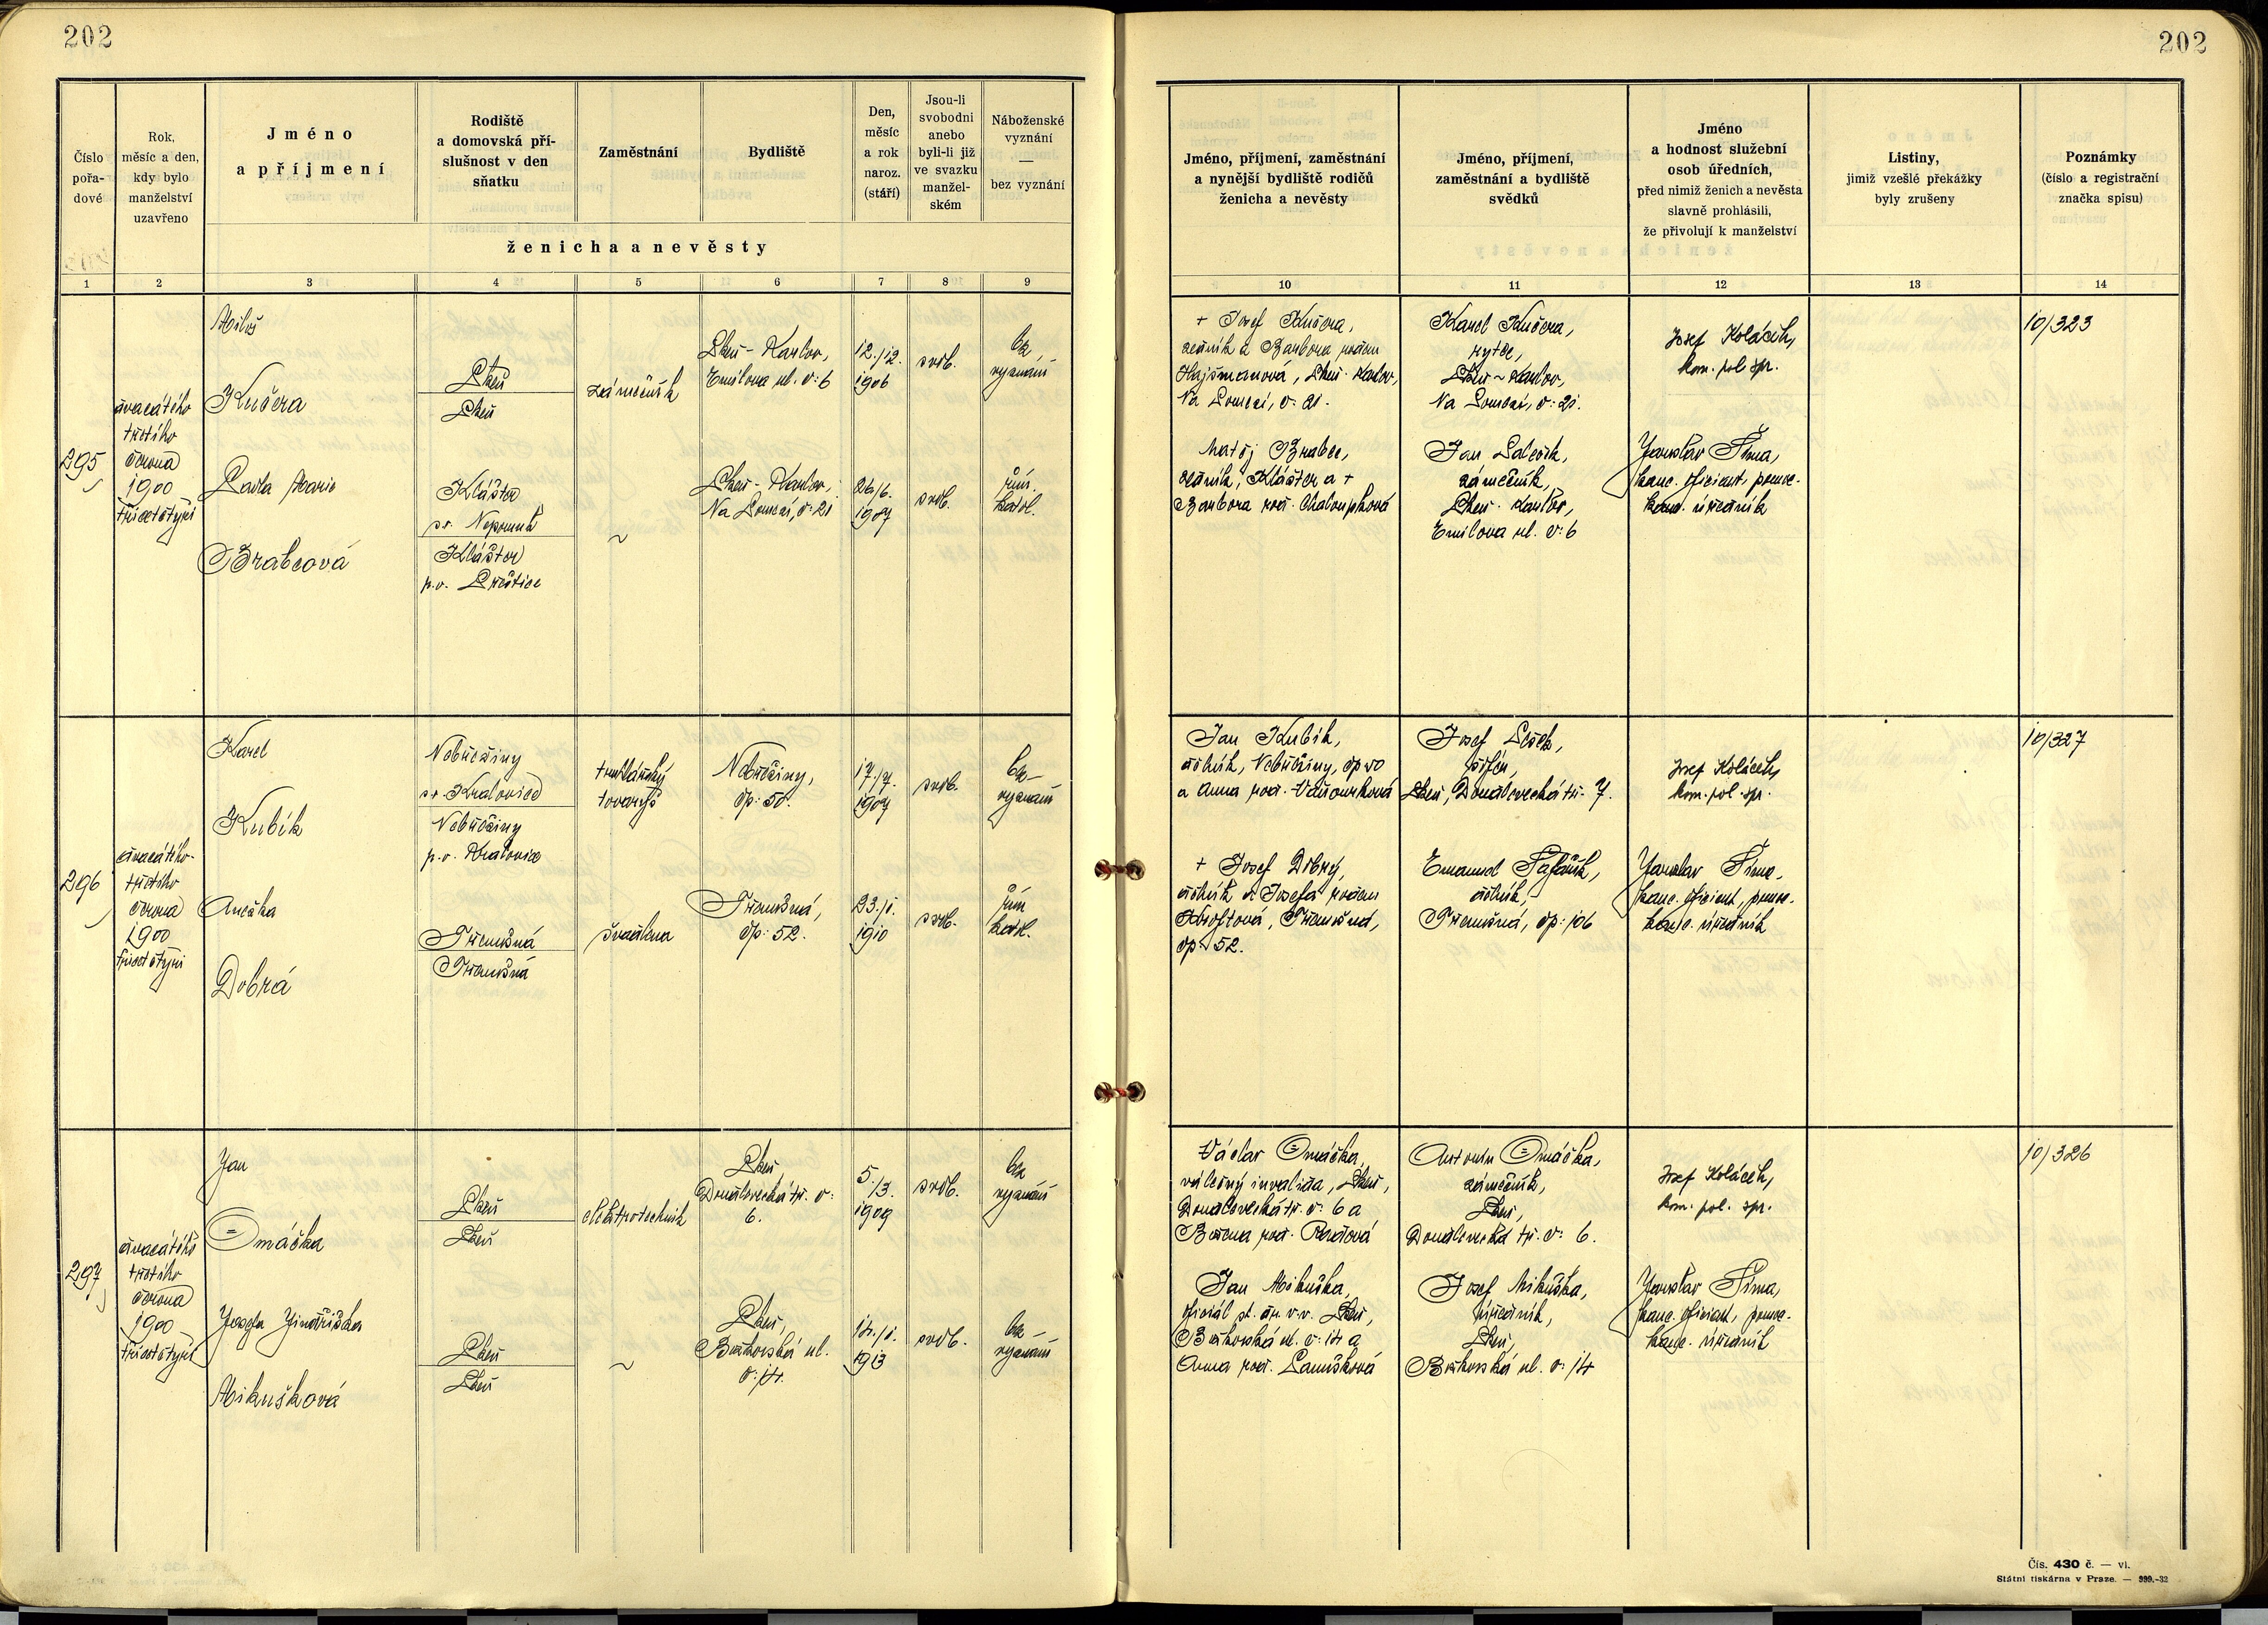 202
202
Číslo
pořa-
dové
Rok,
měsíc a den,
kdy bylo
manželství
uzavřeno
Jméno
a příjmení
Rodiště
a domovská pří-
slušnost v den
sňatku
Zaměstnání
Bydliště
Den,
měsíc
a rok
naroz.
(stáří)
Jsou-li
svobodni
anebo
byli-li již
ve svazku
manžel-
ském
Náboženské
vyznání
—
bez vyznání
ženicha a nevěsty
Jméno, příjmení, zaměstnání
a nynější bydliště rodičů
ženicha a nevěsty
Jméno, příjmení,
zaměstnání a bydliště
svědků
Jméno
a hodnost služební
osob úředních,
před nimiž ženich a nevěsta
slavně prohlásili,
že přivolují k manželství
Listiny,
jimiž vzešlé překážky
byly zrušeny
Poznámky
(číslo a registrační
značka spisu)
1 2 3 4 5 6 7 8 9 10 11 12 13 14
295
dvacátého
třetího
června
1900
třicetčtyři
Miloš
Kučera
Pavla Marie
Brabcová
Plzeň
Plzeň
Klášter
s. Nepomuk
Klášter
p.o. Přeštice
zámečník
~
Plzeň - Karlov,
Emilova ul. č: 6
Plzeň - Karlov,
Na Lomčai, č: 21
12./12.
1906
26/6.
1907
svob.
svob.
bez
vyznání
řím.
katol.
+ Josef Kučera,
zedník a Barbora rozen
Hajšmanová, Plzeň - Karlov,
č: 21.
Matěj Brabec,
zedník, Klášter a +
Barbora roz. Chaloupková
Karel Kučera,
rytec,
Plzeň ~ Karlov,
č: 21.
Jan
zámečník,
Plzeň - Karlov,
Emilova ul. č: 6
Josef Koláček,
kom. pol. spr.
Jaroslav Šíma,
kanc. oficiant, pomoc.
kanc. úředník
10/323
296
dvacátého
třetího
června
1900
třicetčtyři
Karel
Kubík
Anežka
Dobrá
Nebřeziny
s. Kralovice
Nebřeziny
p.o. Kralovice
Třemošná
Třemošná
truhlářský
tovaryš
švadlena
Nebřeziny,
čp: 50.
Třemošná,
čp: 52.
17./7.
1907
23./1.
1910
svob.
svob.
bez
vyznání
řím
katol.
Jan Kubík,
dělník, Nebřeziny, čp 50
a Anna roz. Vaňourková
+ Josef Dobrý,
dělník a Josefa rozen
Kroftová, Třemošná,
čp: 52.
Josef
šofér,
Plzeň, Doudlevecká tř. 7.
Emanuel
dělník,
Třemošná, čp: 106
Josef Koláček,
kom. pol. spr.
Jaroslav Šíma,
kanc. oficiant, pomoc.
kanc. úředník
10/327
297
dvacátého
třetího
června
1900
třicetčtyři
Jan
Omáčka
Josefa Jindřiška
Mikušková
Plzeň
Plzeň
Plzeň
Plzeň
elektrotechnik
~
Plzeň,
Doudlevecká tř. č:
6.
Plzeň,
Borkovská ul.
č: 14.
5./3.
1909
14./1.
1913
svob.
svob.
bez
vyznání
bez
vyznání
Václav Omáčka,
válečný invalida, Plzeň,
Doudlevecká tř. č: 6 a
Božena roz.
Jan Mikuška,
oficiál st. dr. v.v. Plzeň,
Borkovská ul. č: 14 a
Anna roz.
Antonín Omáčka,
zámečník,
Plzeň,
Doudlevecká tř. č: 6.
Josef Mikuška,
úředník,
Plzeň,
Borkovská ul. č: 14
Josef Koláček,
kom. pol. spr.
Jaroslav Šíma,
kanc. oficiant, pomoc.
kanc. úředník
10/326
Čís. 430 č. — vl.
Státní tiskárna v Praze. — 999.-32